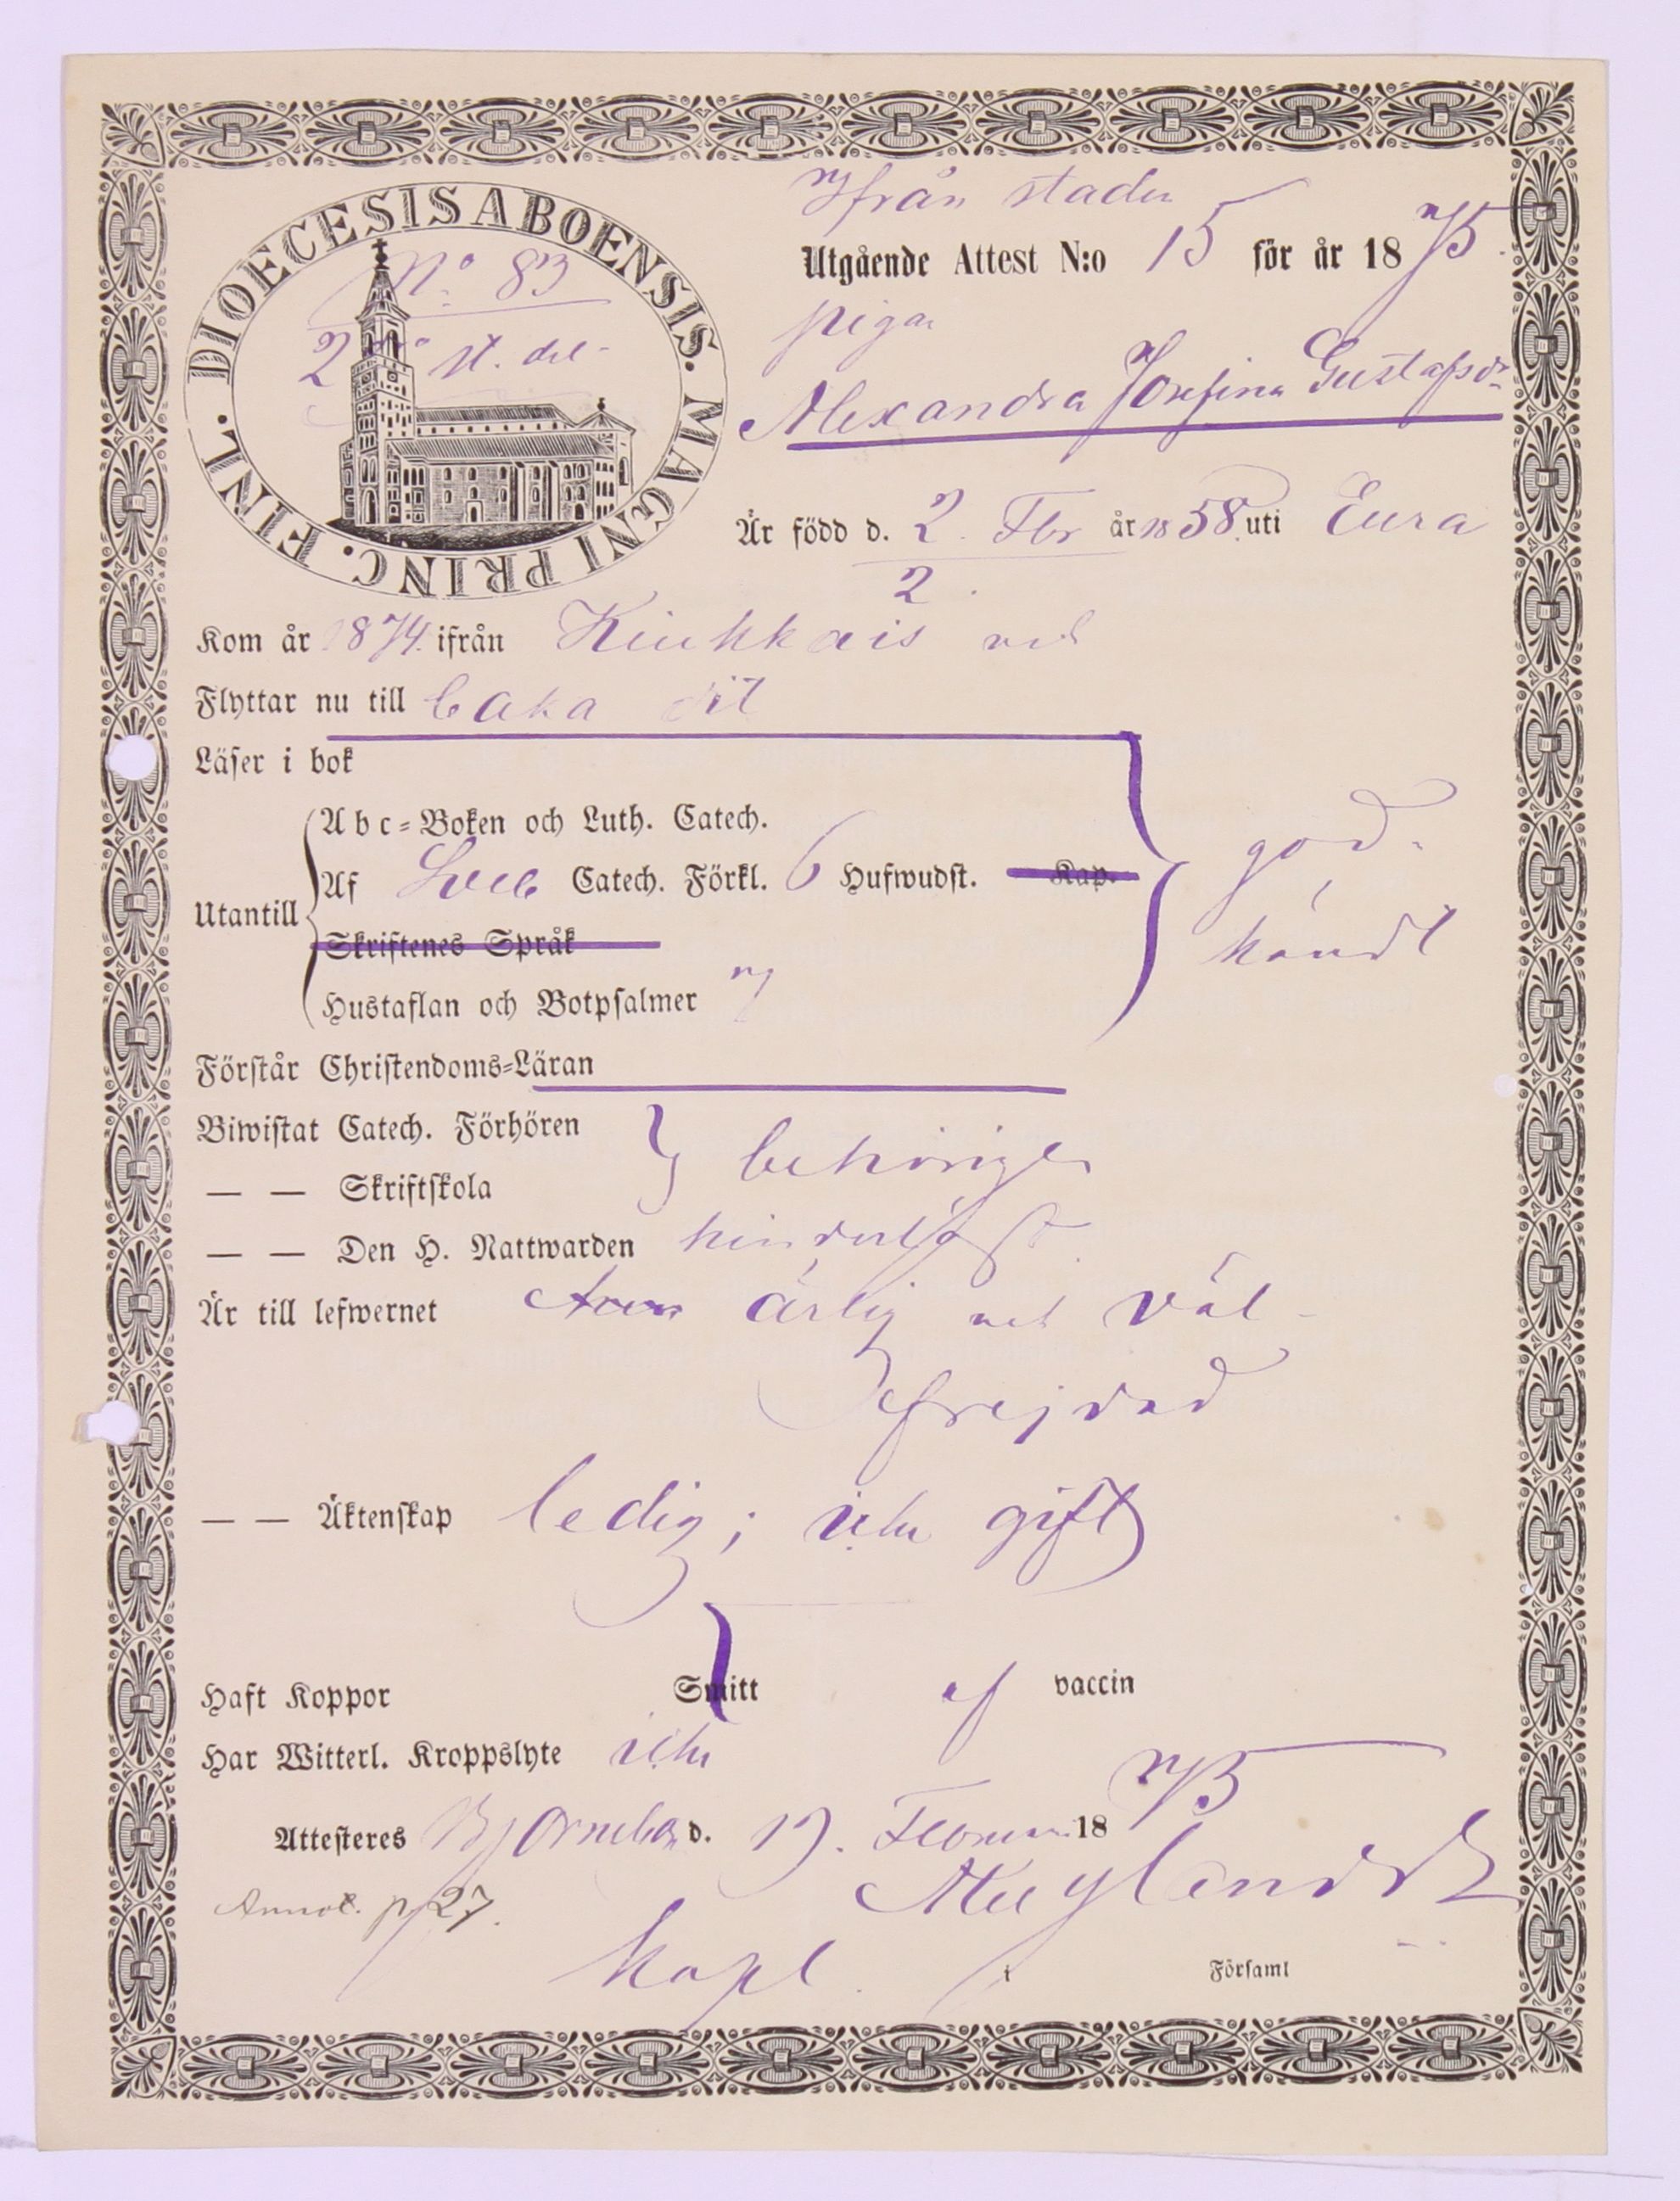 DIOECESIS ABOENSIS. MAGNI PRINC. FINL.
No 83
2 st. del
ifrån staden
Utgående Attest N:o 15 för år 1875.
pigan
Alexandra Josefina Gustafsdr
Är född d. 2. Fbr år 1858. uti Eura
2.
Kom år 1874 ifrån Kiukkais
Flyttar nu till baka dit
Läser i bok
Abc-Boken och Luth. Catech.
Utantill
Af Sveb Catech. Förkl. 6 Hufwudst. Kap.
Skriftenes Språk
Hustaflan och Botpsalmer
god-
kändt
Förstår Christendoms-Läran
Biwistat Catech. Förhören
behörigen
— — Skriftskola
— — Den H. Nattwarden
Är till lefwernet ärlig och väl-
frejdad
— — Äktenskap ledig; icke gift
Haft Koppor Smitt af vaccin
Har Witterl. Kroppslyte icke
Attesteras Björneborg d. 19. Februari 1875
Annot. p 27.
kapl. i Församl